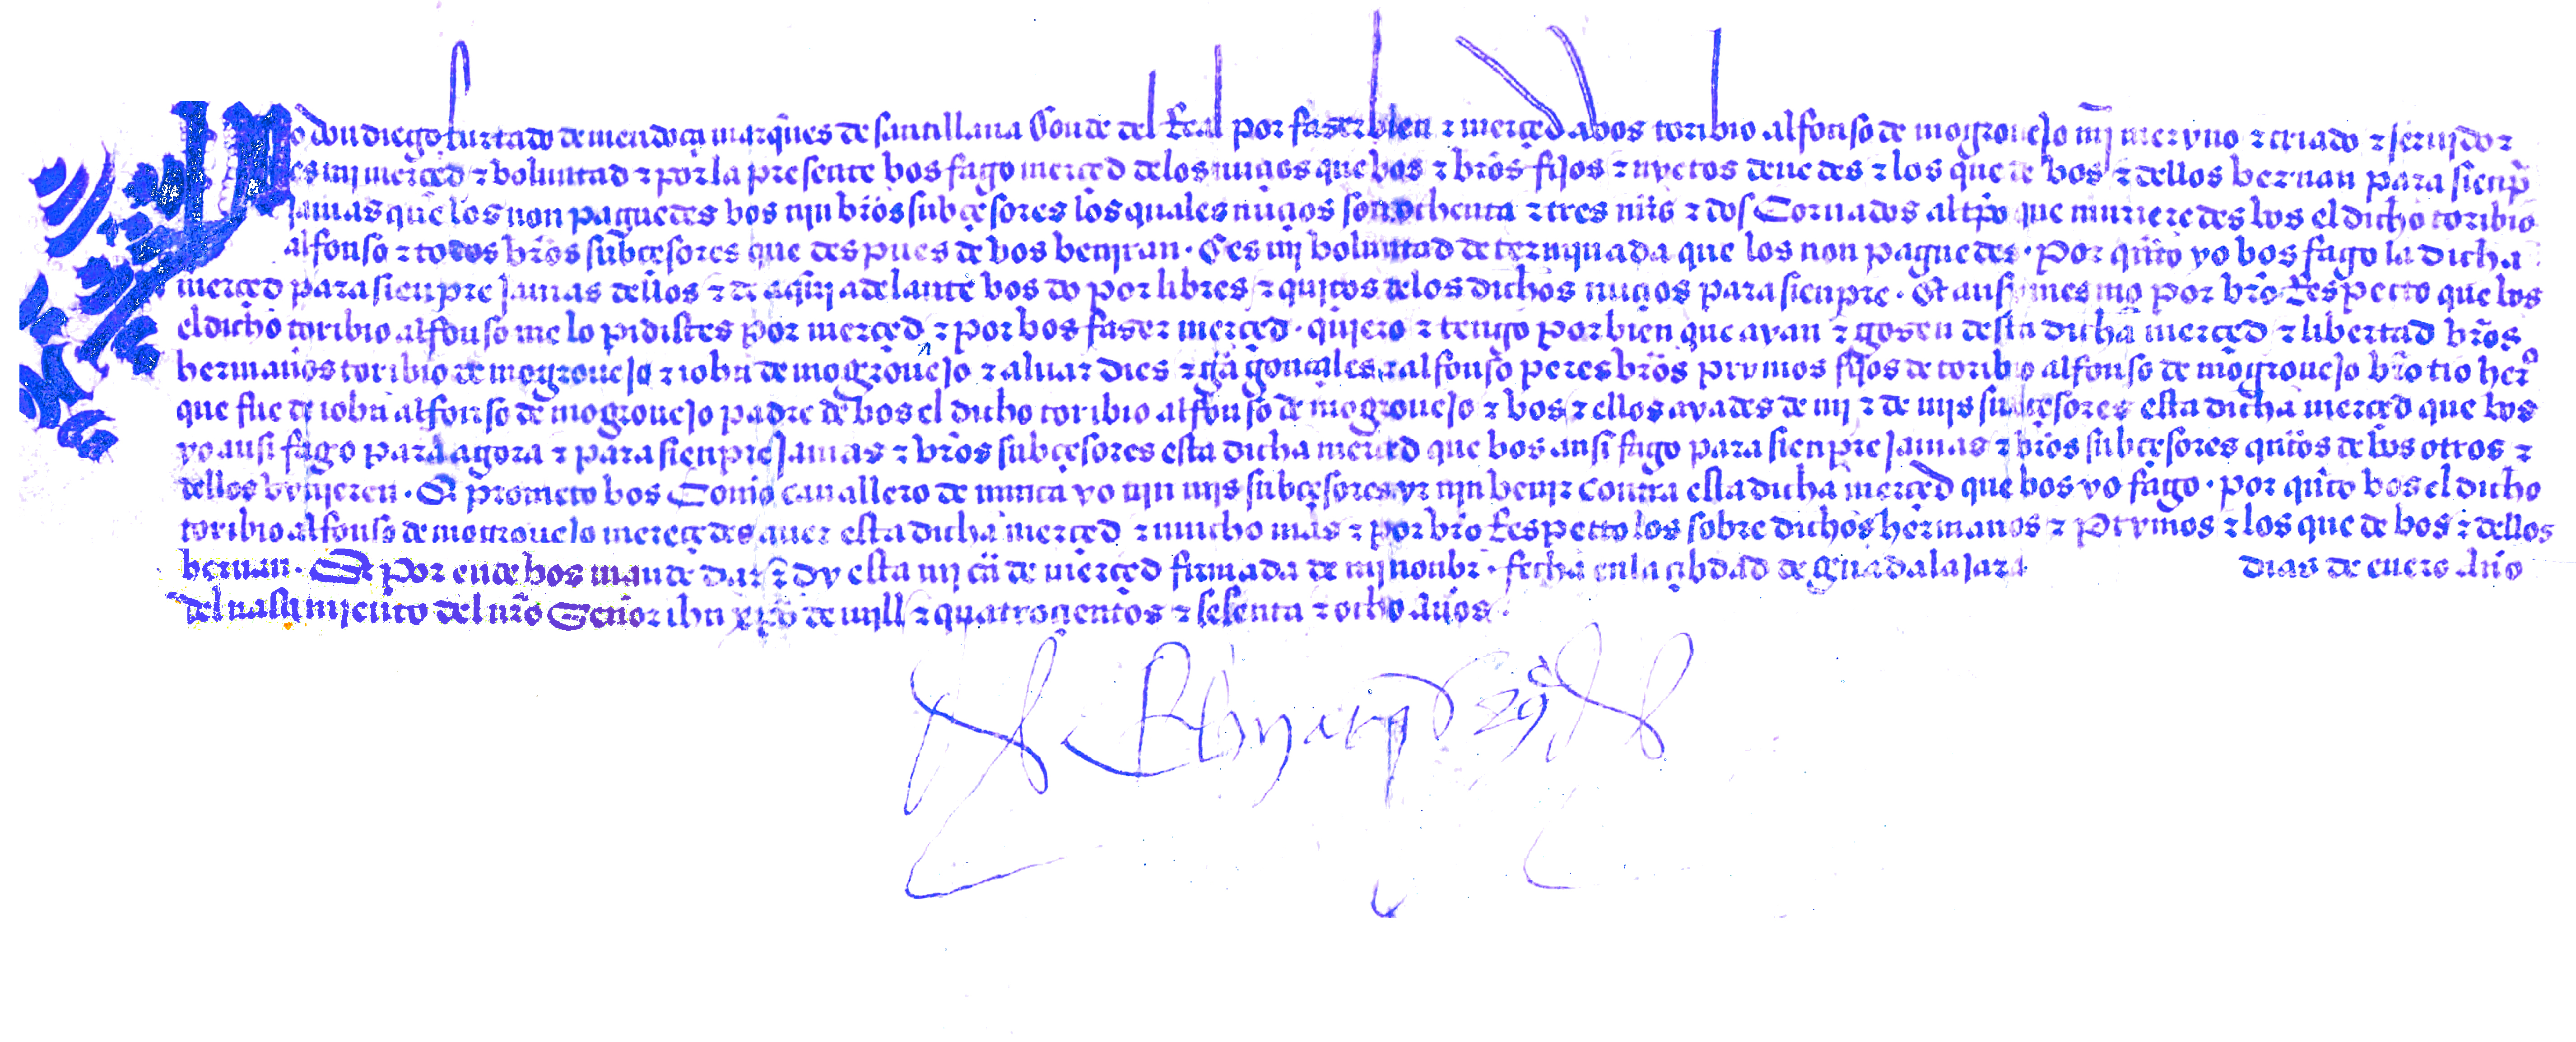 Yo don diego furtado de mendoça marq̃s de santillana Conde del Real por faser bien ⁊ merçed a vos toribio alfonso de mogrouejo mj meryno ⁊ criado ⁊ serujdor
es mi merçed ⁊ boluntad ⁊ por la presente bos fago merçed delos nuçios que bos ⁊ br̃os fijos ⁊ nyetos deuedes ⁊ los que de bos ⁊ dellos bernan para sienp̃
jamas que los non paguedes bos njn br̃os subçesores los quales nuçios son ochenta ⁊ tres mr̃s ⁊ dos Cornados al tp̃o que murieredes bos el dicho toribio
alfonso ⁊ todos br̃os subçesores que despues de bos benjran · E es mj boluntad determjnada que los non paguedes · Por qũto yo bos fago la dicha
merçed para sienpre jamas dellos ⁊ de aquj adelante bos do por libres ⁊ quitos delos dichos nuçios para sienpre · Et ansy mesmo por br̃o Respecto que bos
el dicho toribio alfonso me lo pidistes por merçed ⁊ por bos faser merçed · quiero ⁊ tengo por bien que ayan ⁊ gosen desta dicha merçed ⁊ libertad br̃os
hermanos toribio de mogrouejo ⁊ iohn de mogrouejo ⁊ aluar dies ⁊ gª gonçales ⁊ alfonso peres br̃os prymos fijos de toribio alfonso de mogrouejo br̃o tio herº
que fue de iohn alfonso de mogrouejo padre de bos el dicho toribio alfonso de mogrouejo ⁊ bos ⁊ ellos ayades de mj ⁊ de mjs subçesores esta dicha merçed que bos
yo ansi fago para agora ⁊ para sienpre jamas ⁊ br̃os subçesores esta dicha merçed que bos ansi fago para sienpre jamas ⁊ br̃os subçesores qũtos de bos otros ⁊
dellos benjeren · Et prometo bos Como cauallero de nunca yo njn mjs subçesores yr njn benjr contra esta dicha merçed que bos yo fago · por qũto bos el dicho
toribio alfonso de mogrouejo mereçedes auer esta dicha merçed ⁊ mucho mas ⁊ por br̃o Respecto los sobre dichos hermanos ⁊ prymos ⁊ los que de bos ⁊ dellos
bernan · Et por ende bos mande dar ⁊ dy esta mj cã de merçed firmada de mj nonbr̃ · fecha enla çibdad de guadalajara dias de enero Año
del nasçimjento del nr̃o Señor ihũ xp̃o de mjll ⁊ quatroçientos ⁊ sesenta ⁊ ocho Años ·